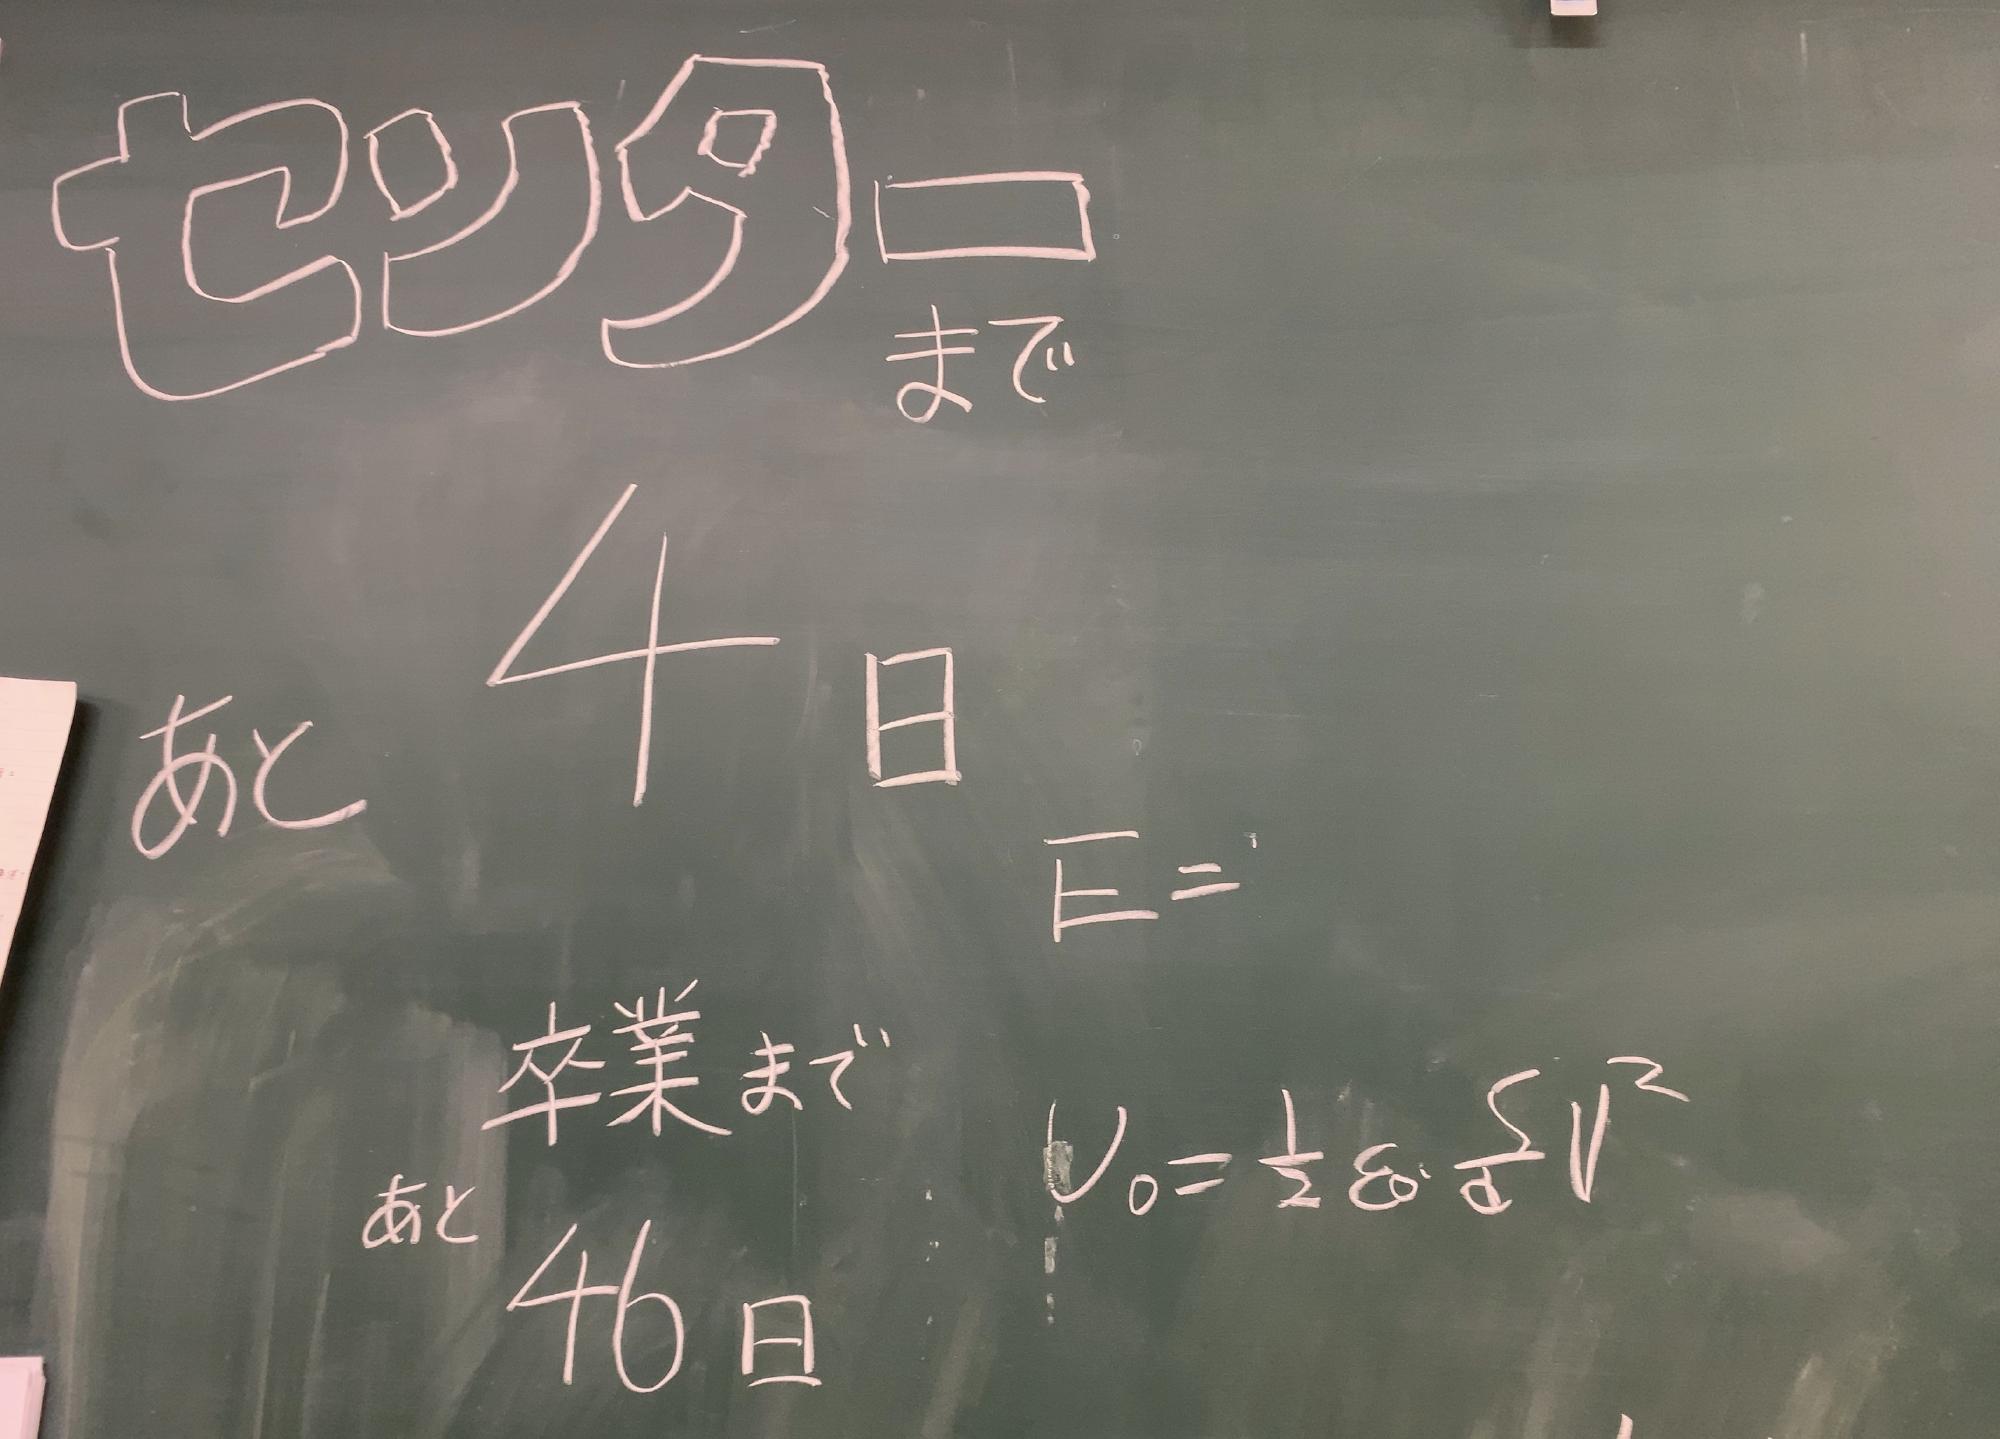 センター
まで
あと 4 日
卒業まで
あと 46 日
E =
U₀ = 1/2 ε₀ S/d V²